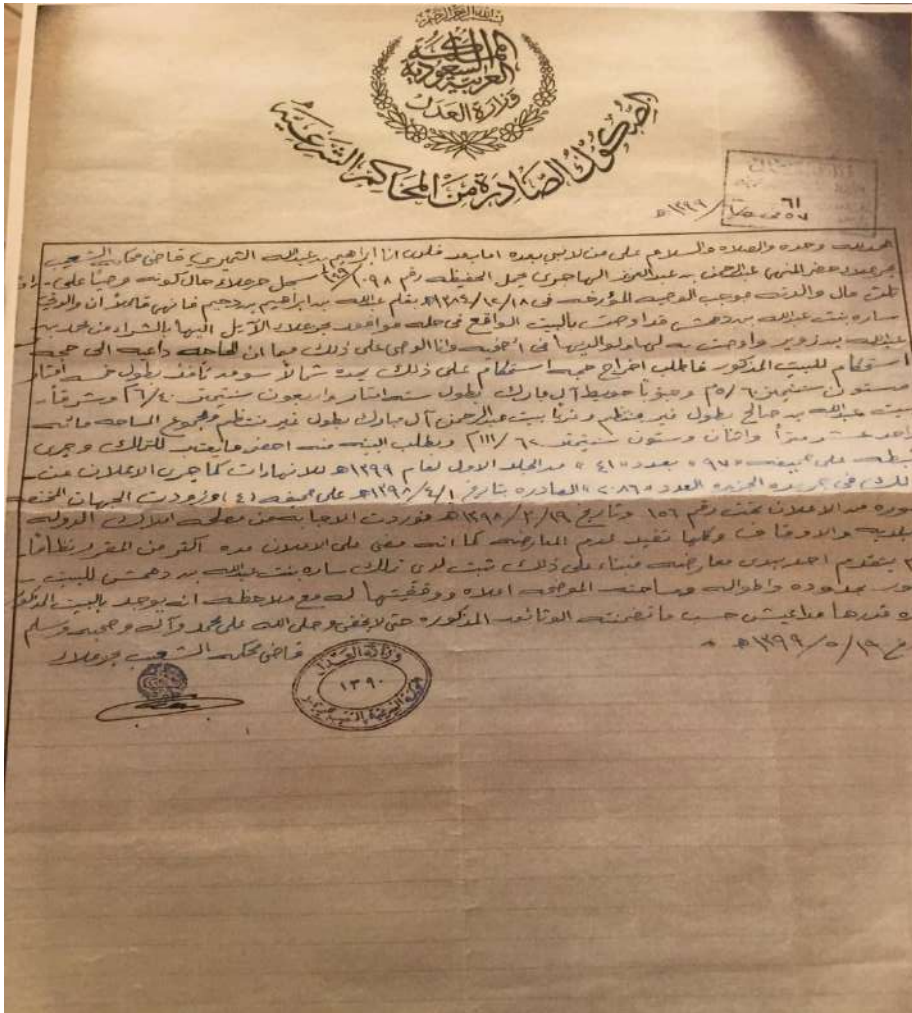 بسم الله الرحمن الرحيم
المملكة العربية السعودية
وزارة العدل
الصكوك الصادرة من المحاكم الشرعية
٦١
١٣٩٩/ هـ
الحمد لله وحده والصلاه والسلام على من لا نبي بعده اما بعد فلدى انا ابراهيم بن عبدالله قاضي محكمة الشعيب
بحرملاء حضر المنهي عبدالرحمن بن عبدالعزيز المهاجري يحمل الحفيظه رقم سجل حرملاء حال كونه وصيا على
ثلث مال والدته بموجب الوصيه المؤرخه في ١٣٨٩/١٢/١٨هـ بقلم عبدالله بن ابراهيم بن دحيم فانهى قائلا ان والدتي
ساره بنت عبدالله بن دهمش قد اوصت بالبيت الواقع في حله بحرملاء الآيل اليها بالشراء من محمد بن
عبدالله بن زوير واوصت به لها ولوالديها في اضحيه وانا الوصي على ذلك وبما ان الحاجه داعيه الى حجه
استحكام للبيت المذكور فاطلب اخراج حجه استحكام على ذلك يحده شمالا سوق نافذ بطول خمسه امتار
وستون سنتيمتر ٥/٦٠م وجنوبا آل مبارك بطول سته امتار واربعون سنتيمتر ٦/٤٠م وشرقا
بيت عبدالله بن صالح بطول غير منتظم وغربا بيت عبدالرحمن آل مبارك بطول غير منتظم ومجموع المساحه مائه
واحد عشر مترا واثنان وستون سنتيمتر ١١١/٦٢م وبطلب البينه منه احضر ما يعتبر للتملك وجرى
ضبطه على صحيفه «٩٧» بعدد «٤١» من الجلد الاول لعام ١٣٩٩هـ للانهاءات كما جرى الاعلان عن
ذلك في جريده الجزيره العدد «٢٠٨٦» الصادره بتاريخ ١٣٩٨/٤/١هـ على صحيفه ٤١ وزودت الجهات المختصه
بصوره من الاعلان تحت رقم ١٥٦ وتاريخ ١٣٩٨/٣/١٩هـ فوردت الاجابه من مصلحه املاك الدوله
والبلديه والاوقاف وكلها تفيد بعدم المعارضه كما انه مضى على الاعلان مده اكثر من المقرر نظاما
ولم يتقدم احد يبدي معارضه فبناء على ذلك ثبت لدي تملك ساره بنت عبدالله بن دهمش للبيت
المذكور بحدوده واطواله ومساحته الموضحه اعلاه ووقفيتها له مع ملاحظه انه يوجد بالبيت المذكور
قدرها حسب ما تضمنته الوثائق المذكوره حتى لا يخفى وصلى الله على محمد وآله وصحبه وسلم
١٣٩٩/٥/١٩هـ
قاضي محكمه الشعيب بحرملاء
وزارة العدل
١٣٩٠